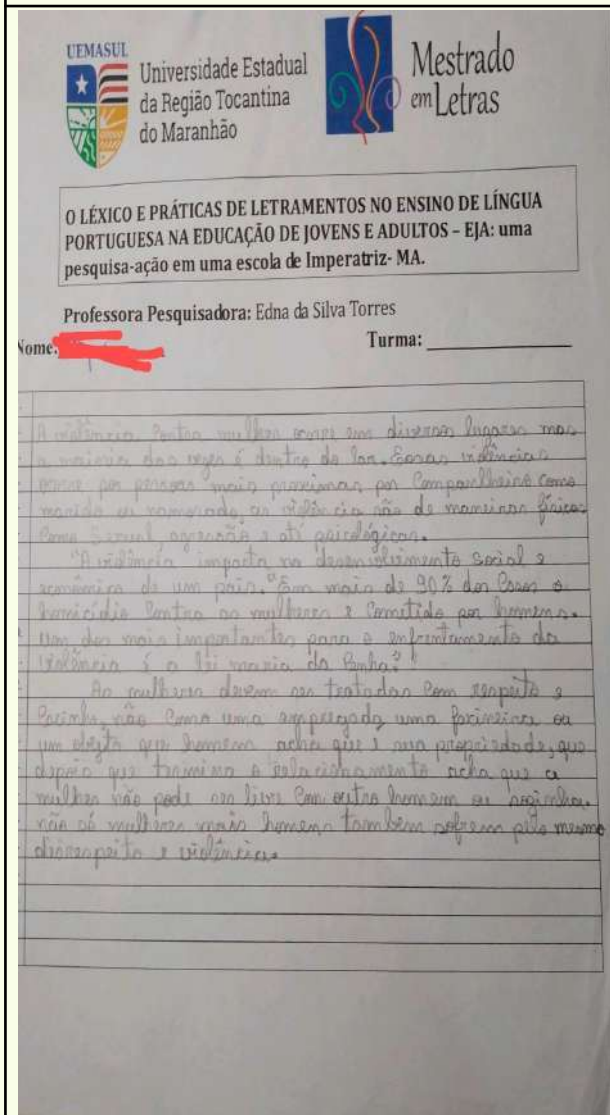 UEMASUL
Universidade Estadual
da Região Tocantina
do Maranhão
Mestrado
em Letras
O LÉXICO E PRÁTICAS DE LETRAMENTOS NO ENSINO DE LÍNGUA
PORTUGUESA NA EDUCAÇÃO DE JOVENS E ADULTOS – EJA: uma
pesquisa-ação em uma escola de Imperatriz- MA.
Professora Pesquisadora: Edna da Silva Torres
Nome:
Turma:
A violência Contra mulher ocorre em diversos lugares mas
a maioria das vezes é dentro do lar. Essas violências
ocorre por pessoas mais proximas por Companlheiro como
marido ou namorado, as violência são de maneiras físicas
Como Sexual agressão e ati psicológicas.
"A violência impacta no desenvolvimento social e
econômico de um pais." Em mais de 90% dos Casos o
homicídio Contra as mulheres e Cometido por homens.
Um dos mais importantes para o enfrentamento da
Violência é a lei maria da Penha."
As mulheres devem ser tratadas Com respeito e
Carinho, não Como uma empregada uma faxineira ou
um objeto que homem acha que e sua propriedade, que
depois que termina o relacionamento acha que a
mulher não pode ser livre Com outro homem ou sozinha.
não só mulheres mais homens também sofrem pelo mesmo
disrespeito e violência.